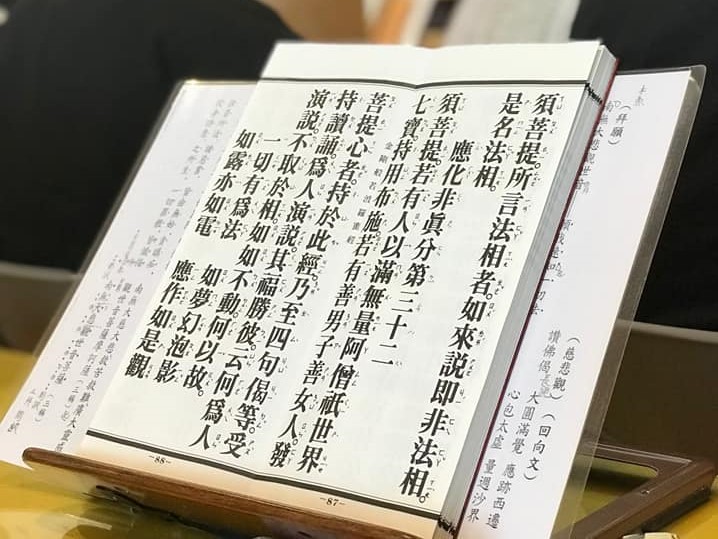 （拜願）
南無大悲觀世
（慈悲觀）（回向文）
讚佛偈
大圓滿覺 應跡西
心包太虛 量週沙界
須菩提。所言法相者。如來說即非法相。
是名法相。
應化非眞分第三十二
須菩提。若有人以滿無量阿僧祇世界
七寶。持用布施。若有善男子善女人。發
金剛般若波羅蜜經
菩提心者。持於此經。乃至四句偈等。受
持讀誦。爲人演說。其福勝彼。云何爲人
演說。不取於相。如如不動。何以故。
一切有爲法 如夢幻泡影
如露亦如電 應作如是觀
-87-
-88-
觀世音菩薩摩訶薩（三稱）